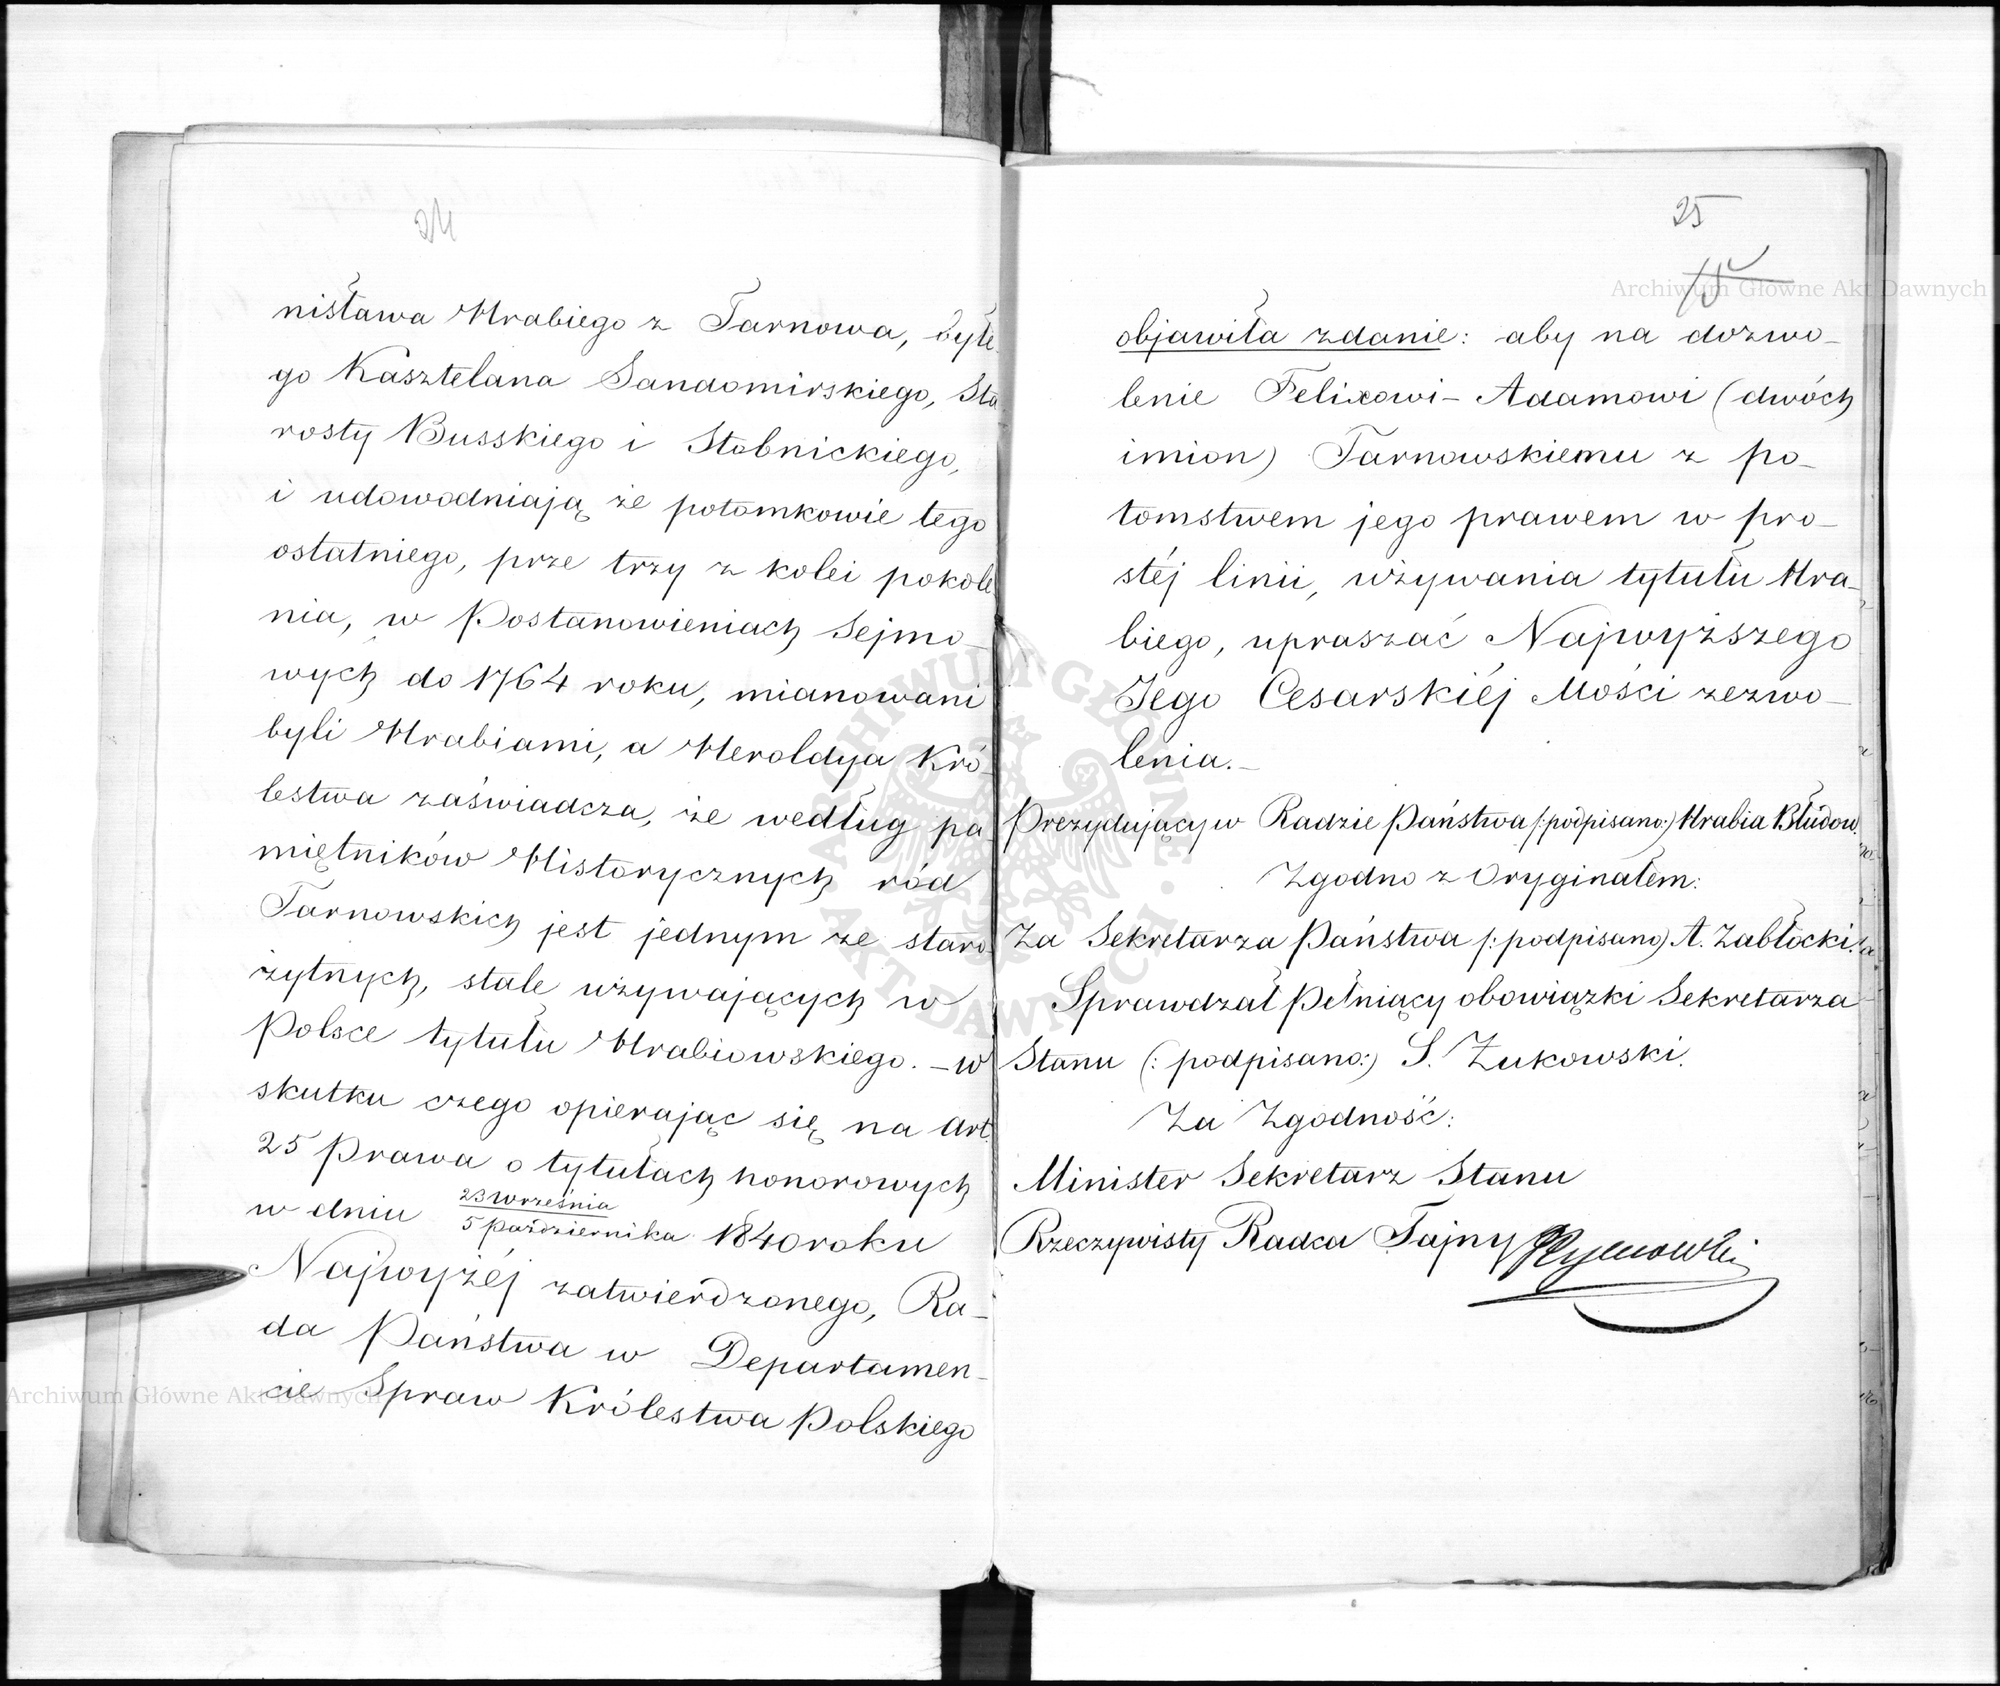 24
nisława Hrabiego z Tarnowa, byłe-
go Kasztelana Sandomirskiego, Sta
rosty Busskiego i Stobnickiego,
i udowodniają że potomkowie tego
ostatniego, prze trzy z kolei pokole
nia, w Postanowieniach Sejmo-
wych do 1764 roku, mianowani
byli Hrabiami, a Heroldya Kró-
lestwa zaświadcza, że według pa-
miętników Historycznych ród
Tarnowskich jest jednym ze staro-
żytnych, stale używających w
Polsce tytułu Hrabiowskiego. – W
skutku czego opierając się na Art.
25 Prawa o tytułach honorowych
w dniu 23 Września / 5 Października 1840 roku
Najwyżéj zatwierdzonego, Ra-
da Państwa w Departamen-
cie Spraw Królestwa Polskiego
25
objawiła zdanie: aby na dozwo-
lenie Felixowi-Adamowi (dwóch
imion) Tarnowskiemu z po-
tomstwem jego prawem w pro-
stéj linii, używania tytułu Hra-
biego, upraszać Najwyższego
Jego Cesarskiéj Mości zezwo-
lenia. –
Prezydujący w Radzie Państwa (:podpisano:) Hrabia Błudow.
Zgodno z Oryginałem:
Za Sekretarza Państwa (:podpisano) A. Zabłocki.
Sprawdzał Pełniący obowiązki Sekretarza
Stanu (:podpisano:) S. Żukowski.
Za Zgodność:
Minister Sekretarz Stanu
Rzeczywisty Radca Tajny
Archiwum Główne Akt Dawnych
ARCHIWUM GŁÓWNE AKT DAWNYCH
Archiwum Główne Akt Dawnych